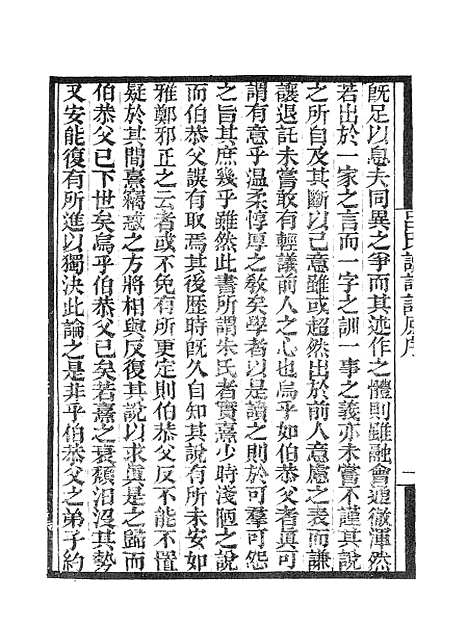 旣足以息夫同異之爭而其述作之體則雖融會通徹渾然
若出於一家之言而一字之訓一事之義亦未嘗不謹其說
之所自及其斷以己意雖或超然出於前人意慮之表而謙
讓退託未嘗敢有輕議前人之心也烏乎如伯恭父者眞可
謂有意乎温柔惇厚之敎矣學者以是讀之則於可羣可怨
之旨其庶幾乎雖然此書所謂朱氏者實熹少時淺陋之說
而伯恭父誤有取焉其後歷時旣久自知其說有所未安如
雅鄭邪正之云者或不免有所更定則伯恭父反不能不置
疑於其閒熹竊惑之方將相與反復其說以求眞是之歸而
伯恭父已下世矣烏乎伯恭父已矣若熹之衰頹汩沒其勢
又安能復有所進以獨決此論之是非乎伯恭父之弟子約
呂氏讀詩記 序
一